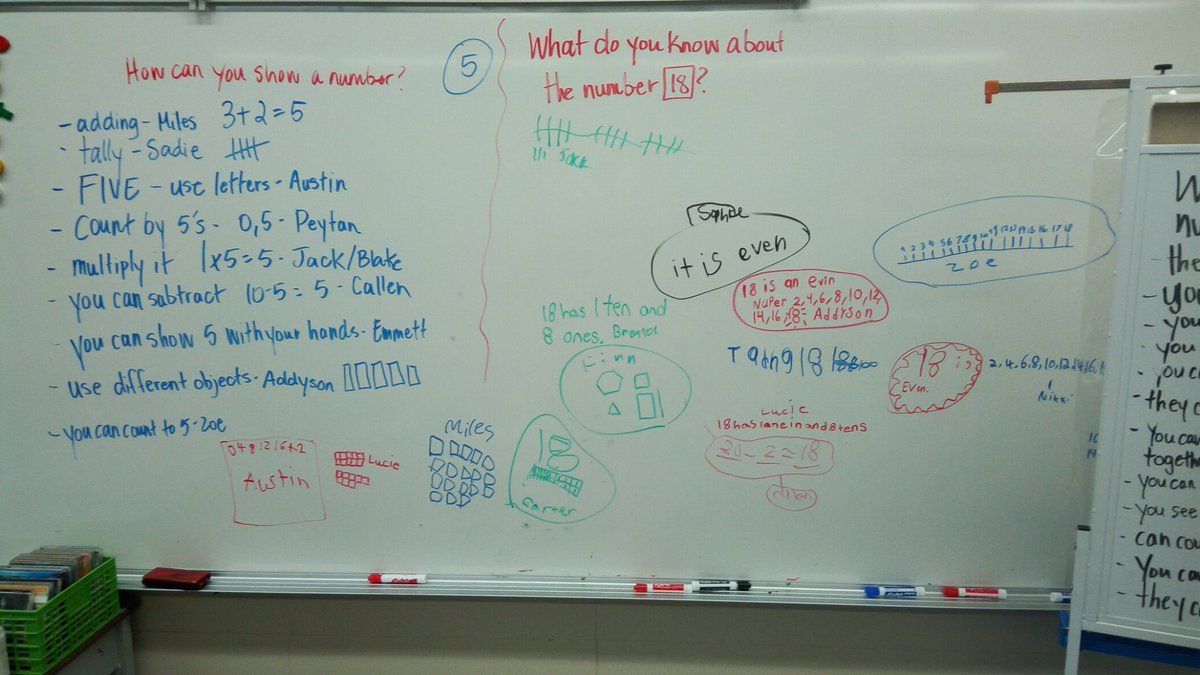 How can you show a number?
5
- adding - Miles 3+2=5
- tally - Sadie
- FIVE - use letters - Austin
- Count by 5's - 0,5 - Peytan
- multiply it 1x5=5 - Jack/Blake
- you can subtract 10-5=5 - Callen
- you can show 5 with your hands - Emmett
- use different objects - Addyson
- you can count to 5 - Zoe
Austin
Lucie
Miles
What do you know about
the number 18?
Jack
Sophie
it is even
1 2 3 4 5 6 7 8 9 10 11 12 13 14 15 16 17 18
zoe
18 is an evin
Nuper 2,4,6,8,10,12,
14,16,18- Addyson
18 has 1 ten and
8 ones.
Finn
18
Carter
18 is
Even.
2,4,6,8,10,12,14,16,
Lucie
18 has 1 one in and 8 tens
20-2=18
- you
- they c
- You can
togethe
- you can
- you see
- can cou
- You ca
- they c